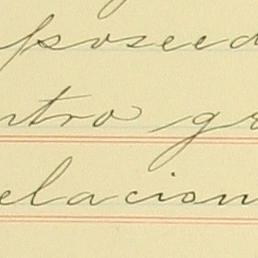 poseed
ntro gr
elacion